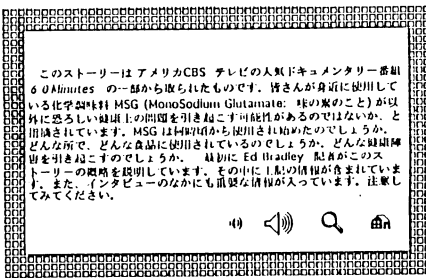 このストーリーは アメリカCBS テレビの人気ドキュメンタリー番組
60 Minutes の一部から取られたものです。皆さんが身近に使用して
いる化学調味料 MSG (MonoSodium Glutamate: 味の素のこと) が以
外に恐ろしい健康上の問題を引き起こす可能性があるのではないか、と
指摘されています。MSG は何時頃から使用され始めたのでしょうか。
どんな所で、どんな食品に使用されているのでしょうか。どんな健康障
害を引き起こすのでしょうか。 最初に Ed Bradley 記者がこのス
トーリーの概略を説明しています。その中に上記の情報が含まれていま
す。また、インタビューのなかにも重要な情報が入っています。注意し
てみてください。